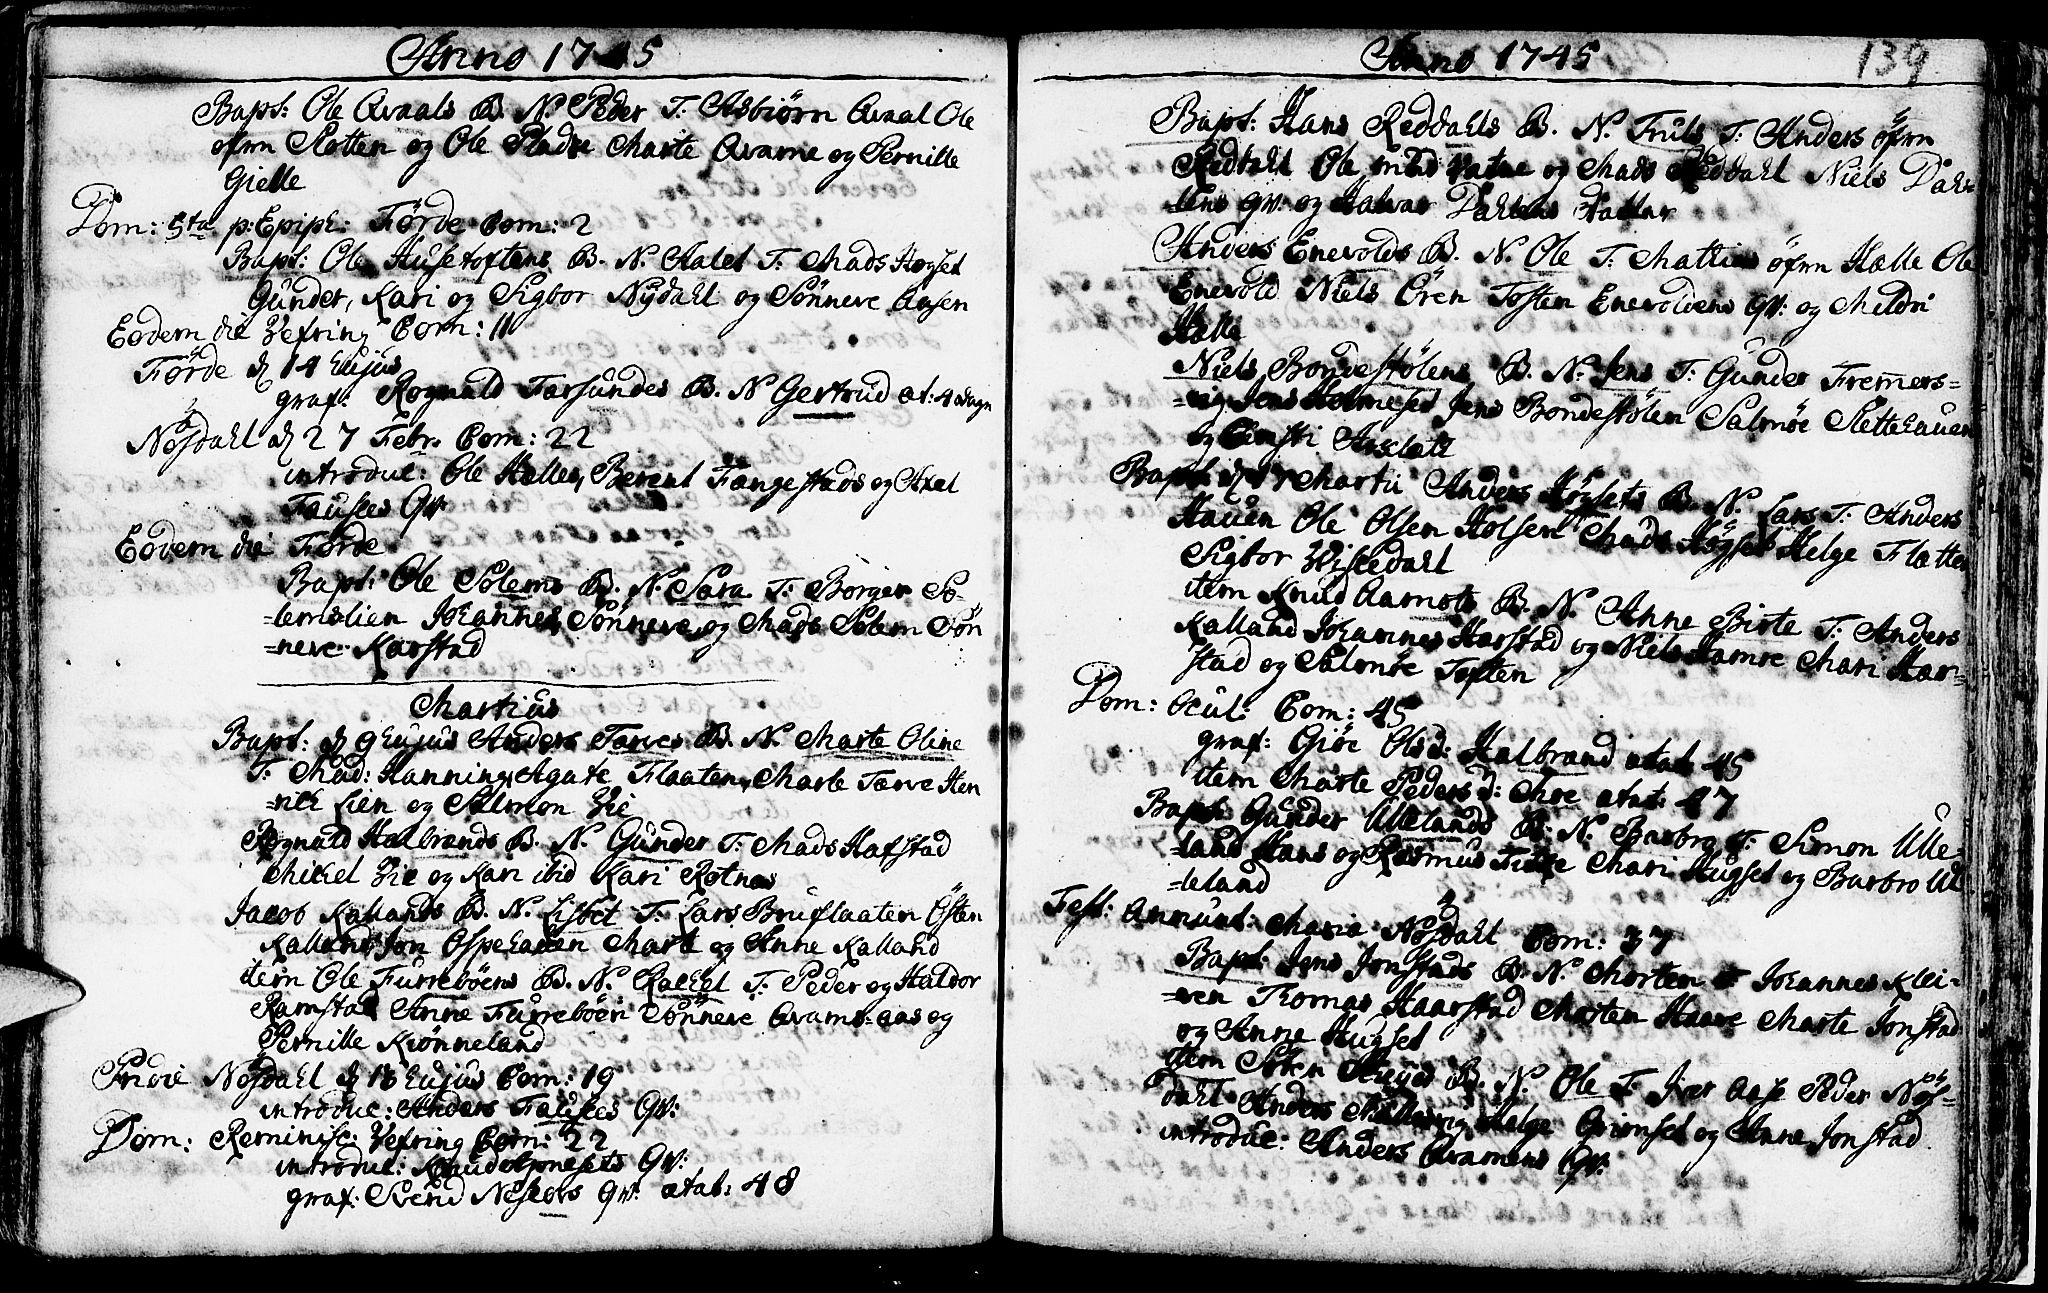 Anno 1745
Bapt: Ole Qvaals B. N. Peder T. Asbiörn Qvaal Ole
ofrn Slotten og Ole Marte Qvame og Pernille
Gielle
Dom: 5ta p: Epiph: Förde Com: 2
Bapt: Ole Husetoftens B. N. T. Mads Hogset
Gunder, Kari og Sigbor Nÿdahl og Sönneve
Eodem die Vefring Com: 11
Förde d 14 hujus
graf: Rognald Farsundes B. N Gertrud æt: 4 dagr
Nösdahl d 27 Febr. Com: 22
introduc: Ole Halles, Berent Fængestads og Axel
Fauskes Qv:
Eodem die Förde
Bapt: Ole Solems B. N. Sara T. Börger So-
lemslien Johannes, Sönneve og Mads Solem Sön
=neve Karstad
Martius
Bapt: d 9 hujus Anders Tarves B. N. Marte Oline
T. Mad: Hanning, Agate Flaaten, Marte Tarve Hen
=rich Lien og Salmon Vie
Rognald Halbrands B. N. Gunder T. Mads Hafstad
Michel Vie og Kari ibid Kari Rotnas
Jacob Kallands B. N. Lisbet T. Lars Bruflaaten Östen
Kalland Jon Ospehauen Marte og Anne Kalland
item Ole Furreböens B. N. Rachel T. Peder og Haldor
Ramstad Anne Furreböen Sönneve Qvams-aas og
Pernille Kiönneland
Pridie Nösdahl d 13 hujus Com: 19
introduc: Anders Fauskes Qv:
Dom: Reminisc: Vefring Com: 22
introduc: Qv:
graf: Svend Qv: ætat: 48
Anno 1745
139
Bapt: Hans Reddahls B. N. Truls T. Anders öfrn
Reddahl Ole og Mads Reddahl Niels Dah-
lens qv: og Halvar Dahlens Datter
Anders Enevolds B. N. Ole T. Matties öfrn Halle Ole
Enevold Niels Ören Tosten Enevoldens qv: og Meldri
Halle
Niels Bondestölens B. N. Jens T. Gunder Fremers=
=vig Jens Holmeset Jens Bondestölen Salmöe Slettehauen
og
Bapt: d 17 Martii Anders Högsets B. N. Lars T. Anders
Hauen Ole Olsen Holsen Mads Högset Helge Flatten
Sigbor Viskedahl
item Knud B. N. Anne Birte T. Anders
Kalland Johannes Harstad og Niels Hamre Mari Har-
stad og Salmöe Toften
Dom: Ocul: Com: 45
graf: Giöe Olsd: Halbrand ætat: 45
item Marte Pedersd: Moe ætat: 47
Bapt: Gunder Ullelands B. N. Barbro T. Simon Ulle-
=land Hans og Rasmus Mari Hugset og Barbro Ul
=leland
Fest: Annunt: Maria Nösdahl Com: 37
Bapt: Jens Jonstads B. N. Morten T. Johannes Klei-
=ven Thomas Haarstad Morten Haare Marte Jonstad
og Anne Hugset
item B. N. Ole T. Iver Aase Peder Nös-
dahl Anders Helge Grimset og Anne Jonstad
introduc: Anders Qvamens Qv: